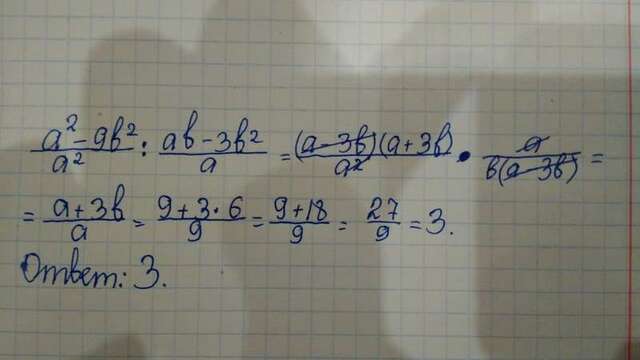 (a² - 9b²)/a² : (ab - 3b²)/a = (a - 3b)(a + 3b)/a² · a/(b(a - 3b)) =
= (a + 3b)/a = (9 + 3·6)/9 = (9 + 18)/9 = 27/9 = 3.
Ответ: 3.